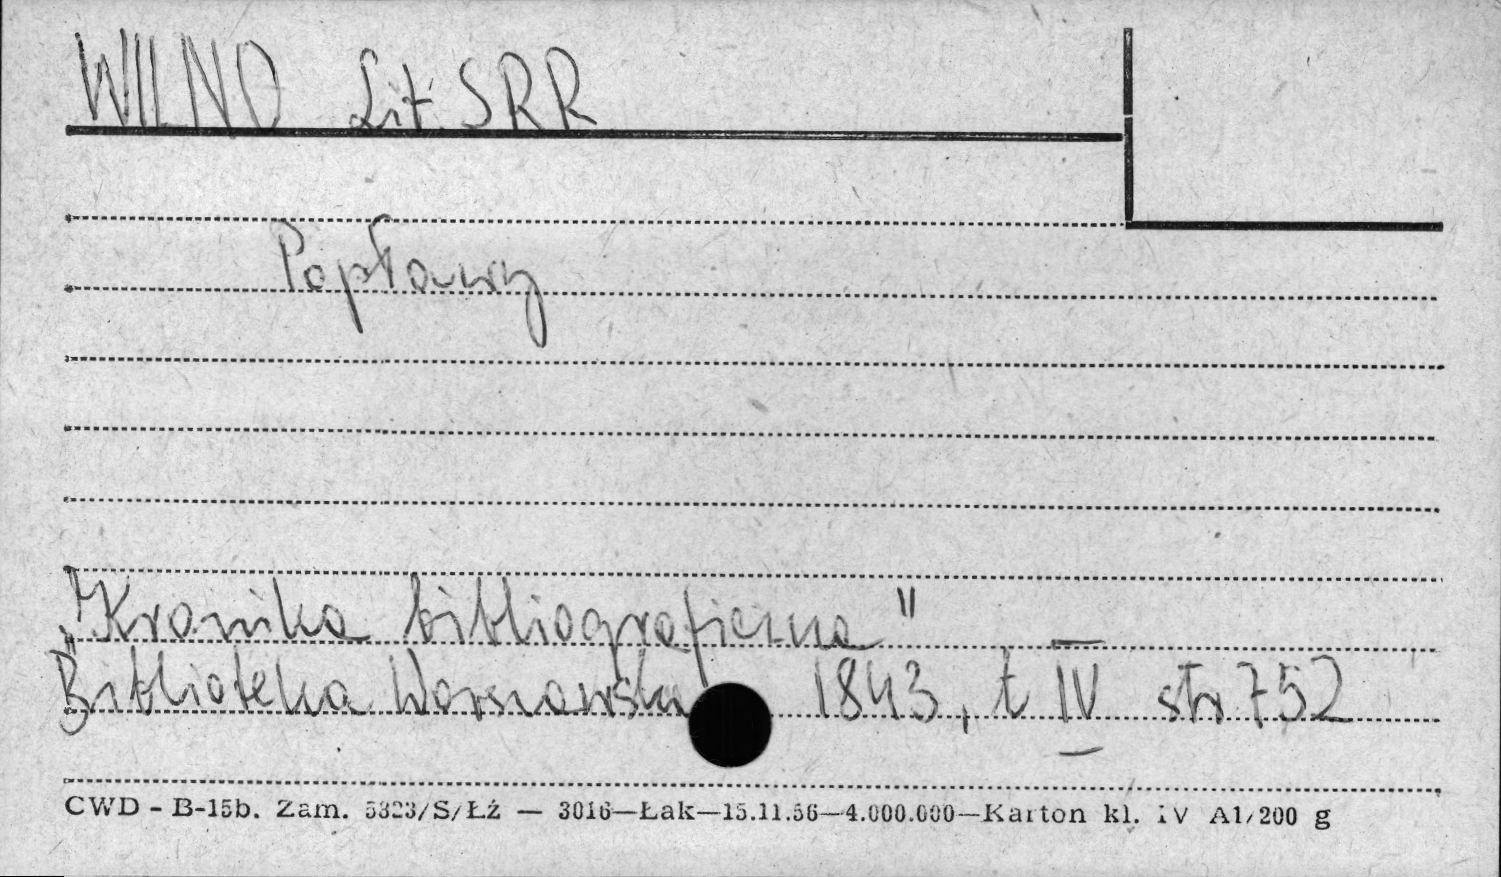 WILNO Lit. SRR
Popławy
„Kronika bibliograficzna"
Biblioteka Warszawska 1843, t IV str 752
CWD - B-15b. Zam. 5323/S/Łź — 3016—Łak—15.11.56—4.000.000—Karton kl. IV A1/200 g